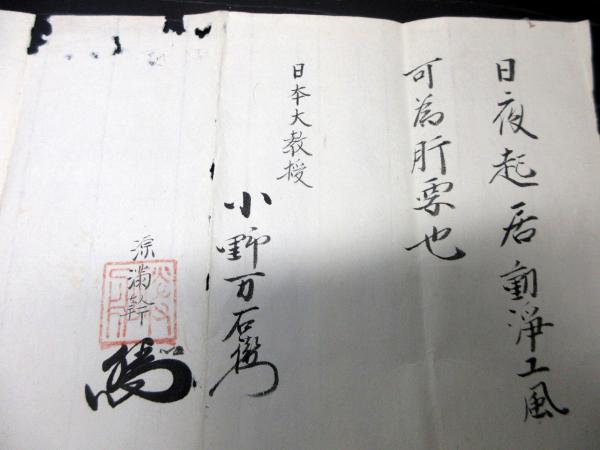 日夜起居動浄工風
可為肝要也
日本大教授
小野万右衛門
源満幹